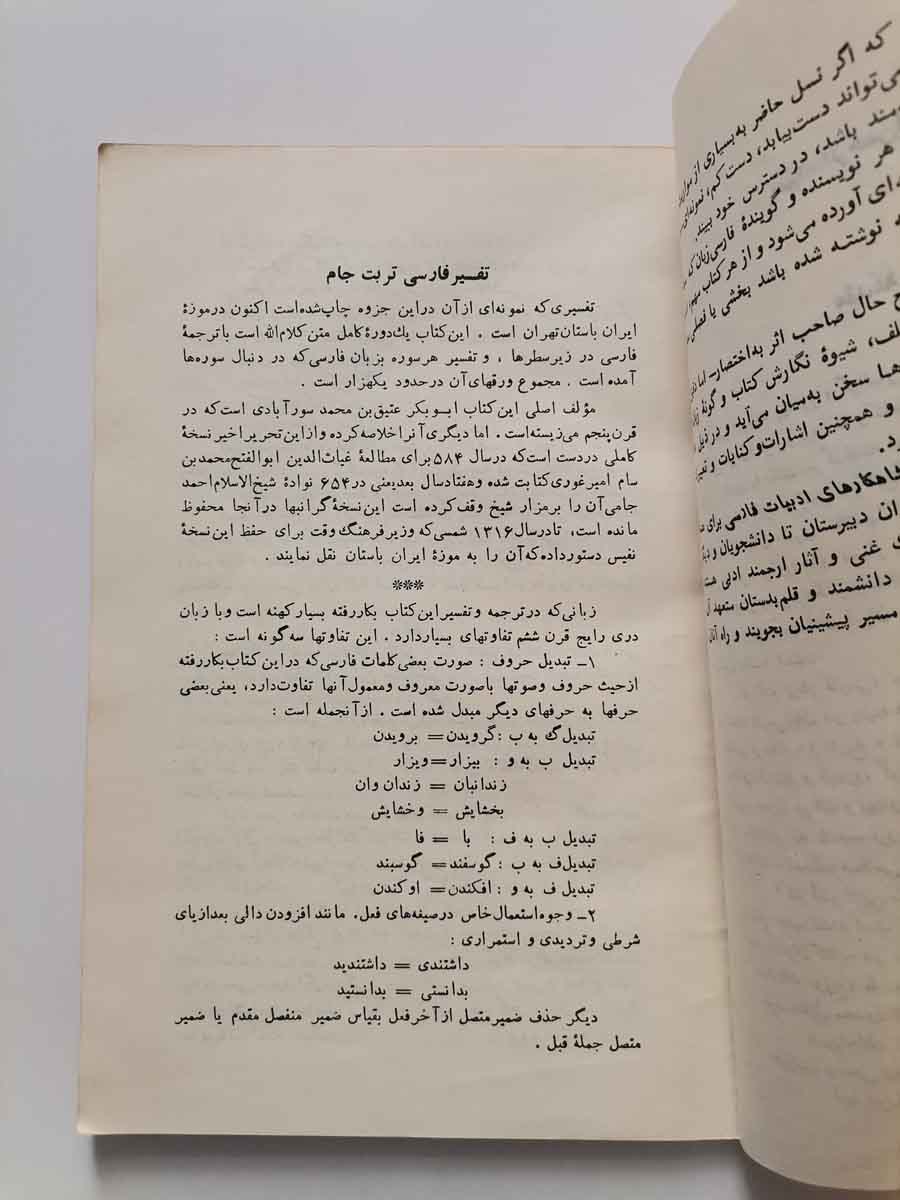 تفسیر فارسی تربت جام
تفسیری که نمونه‌ای از آن در این جزوه چاپ شده است اکنون در موزهٔ
ایران باستان تهران است . این کتاب یك دورهٔ کامل متن کلام‌الله است با ترجمهٔ
فارسی در زیر سطرها ، و تفسیر هر سوره بزبان فارسی که در دنبال سوره‌ها
آمده است . مجموع ورقهای آن در حدود یکهزار است .
مؤلف اصلی این کتاب ابو بکر عتیق بن محمد سور آبادی است که در
قرن پنجم می‌زیسته است. اما دیگری آنرا خلاصه کرده و از این تحریر اخیر نسخهٔ
کاملی در دست است که در سال ۵۸۴ برای مطالعهٔ غیاث‌الدین ابوالفتح محمد بن
سام امیر غوری کتابت شده و هفتاد سال بعد یعنی در ۶۵۴ نوادهٔ شیخ‌الاسلام احمد
جامی آن را بر مزار شیخ وقف کرده است این نسخهٔ گرانبها در آنجا محفوظ
مانده است، تا در سال ۱۳۱۶ شمسی که وزیر فرهنگ وقت برای حفظ این نسخهٔ
نفیس دستور داده که آن را به موزهٔ ایران باستان نقل نمایند .
***
زبانی که در ترجمه و تفسیر این کتاب بکار رفته بسیار کهنه است و با زبان
دری رایج قرن ششم تفاوتهای بسیار دارد . این تفاوتها سه گونه است :
۱ــ تبدیل حروف : صورت بعضی کلمات فارسی که در این کتاب بکار رفته
از حیث حروف وصوتها باصورت معروف و معمول آنها تفاوت دارد، یعنی بعضی
حرفها به حرفهای دیگر مبدل شده است . از آنجمله است :
تبدیل گ به ب : گرویدن = برویدن
تبدیل ب به و : بیزار = ویزار
زندانبان = زندان وان
بخشایش = وخشایش
تبدیل ب به ف : با = فا
تبدیل ف به ب : گوسفند = گوسبند
تبدیل ف به و : افکندن = اوکندن
۲ــ وجوه استعمال خاص در صیغه‌های فعل. مانند افزودن دالی بعد از یای
شرطی و تردیدی و استمراری :
داشتندی = داشتندید
بدانستی = بدانستید
دیگر حذف ضمیر متصل از آخر فعل بقیاس ضمیر منفصل مقدم یا ضمیر
متصل جملهٔ قبل .
که اگر نسل حاضر به بسیاری از
می‌تواند دست بیابد، دست کم، نمونه‌ای
باشد، در دسترس خود ببیند.
هر نویسنده و گویندهٔ فارسی زبان که
آورده می‌شود و از هر کتاب
نوشته شده باشد بخشی یا فصلی
حال صاحب اثر به‌اختصار ــ اما
شیوهٔ نگارش کتاب و گونهٔ
سخن به‌میان می‌آید و در ذیل
و همچنین اشارات و کنایات و
شاهکارهای ادبیات فارسی برای
دبیرستان تا دانشجویان و
غنی و آثار ارجمند ادبی
دانشمند و قلم بدستان متعهد
مسیر پیشینیان بجویند و راه